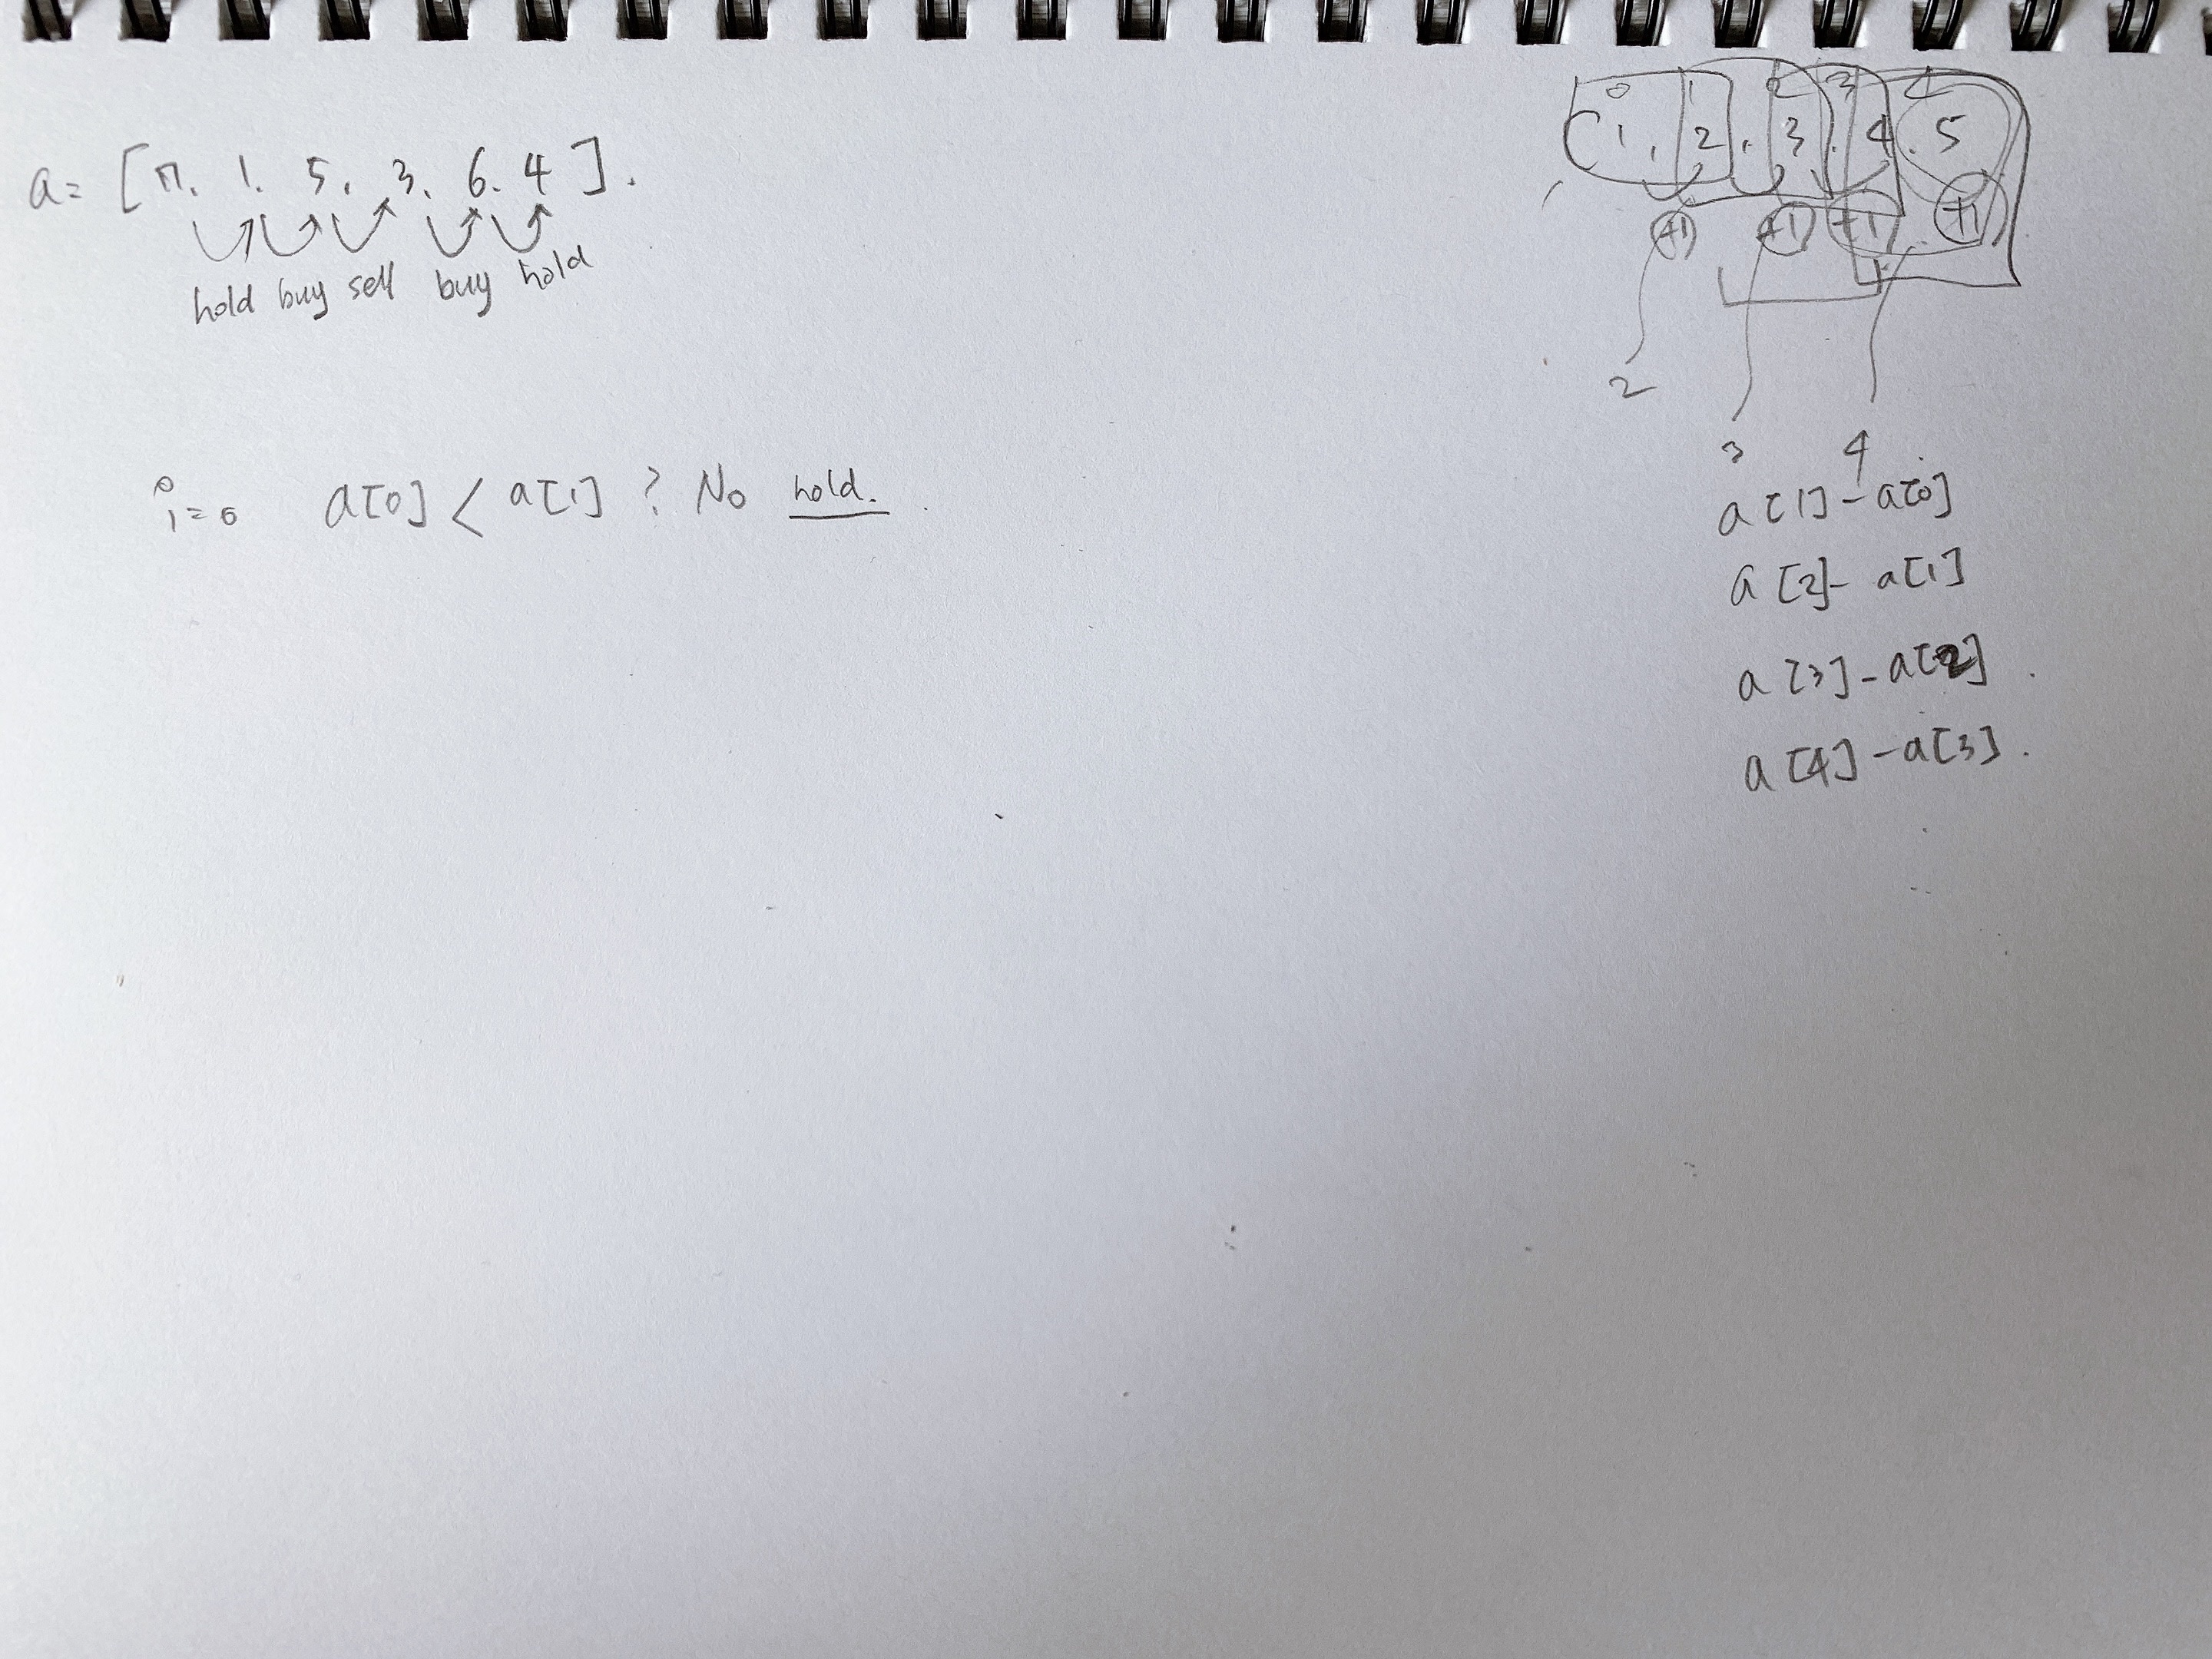 a = [7. 1. 5. 3. 6. 4].
hold buy sell buy hold
i=0 a[0] < a[1] ? No hold.
0 1 2 3 4
[1, 2, 3, 4, 5
+1 +1 +1 +1
2
3 4
a[1] - a[0]
a[2] - a[1]
a[3] - a[2].
a[4] - a[3].